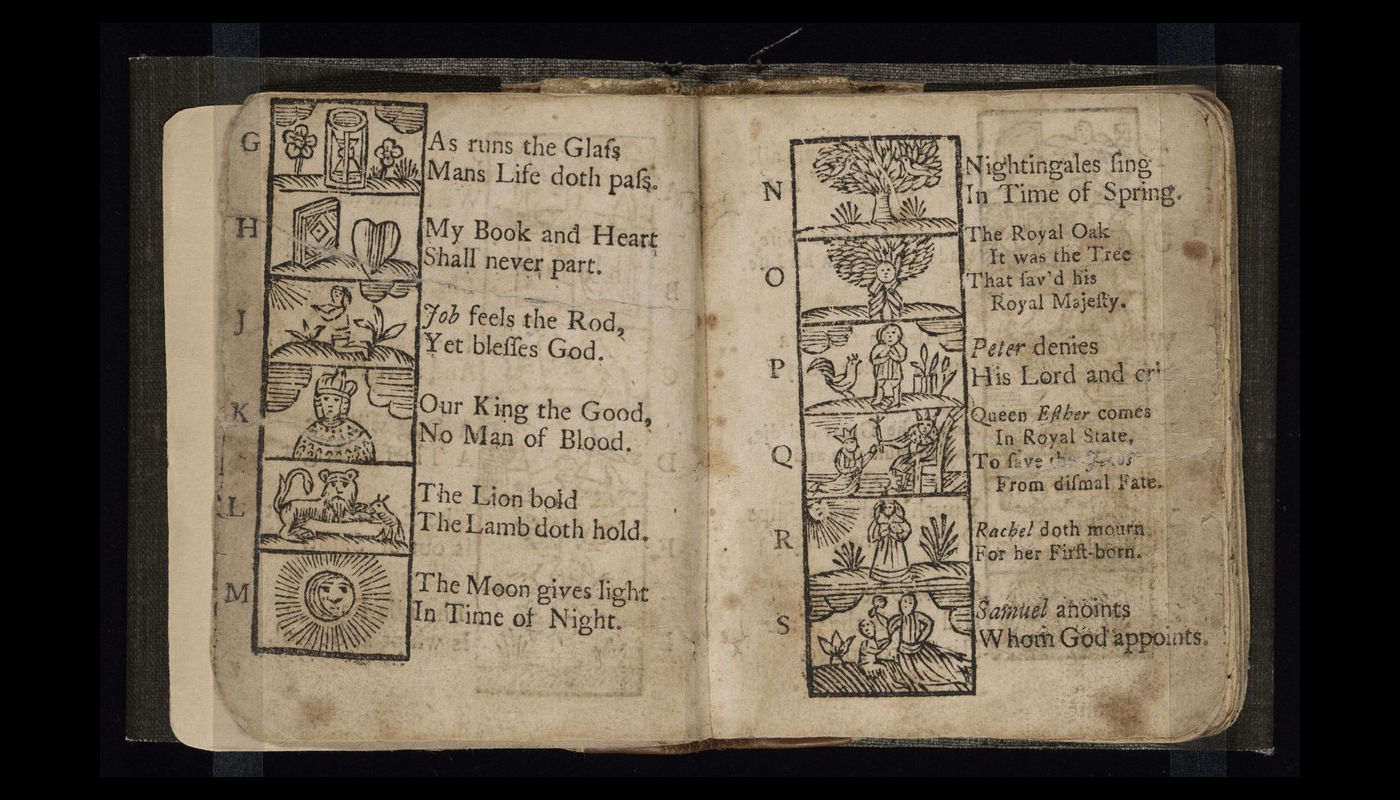 G
As runs the Glaſs
Mans Life doth paſs.
H
My Book and Heart
Shall never part.
J
Job feels the Rod,
Yet bleſſes God.
K
Our King the Good,
No Man of Blood.
L
The Lion bold
The Lamb doth hold.
M
The Moon gives light
In Time of Night.
N
Nightingales ſing
In Time of Spring.
O
The Royal Oak
It was the Tree
That ſav'd his
Royal Majeſty.
P
Peter denies
His Lord and
Q
Queen Eſther comes
In Royal State,
To ſave the Jews
From diſmal Fate.
R
Rachel doth mourn
For her Firſt-born.
S
Samuel anoints
Whom God appoints.